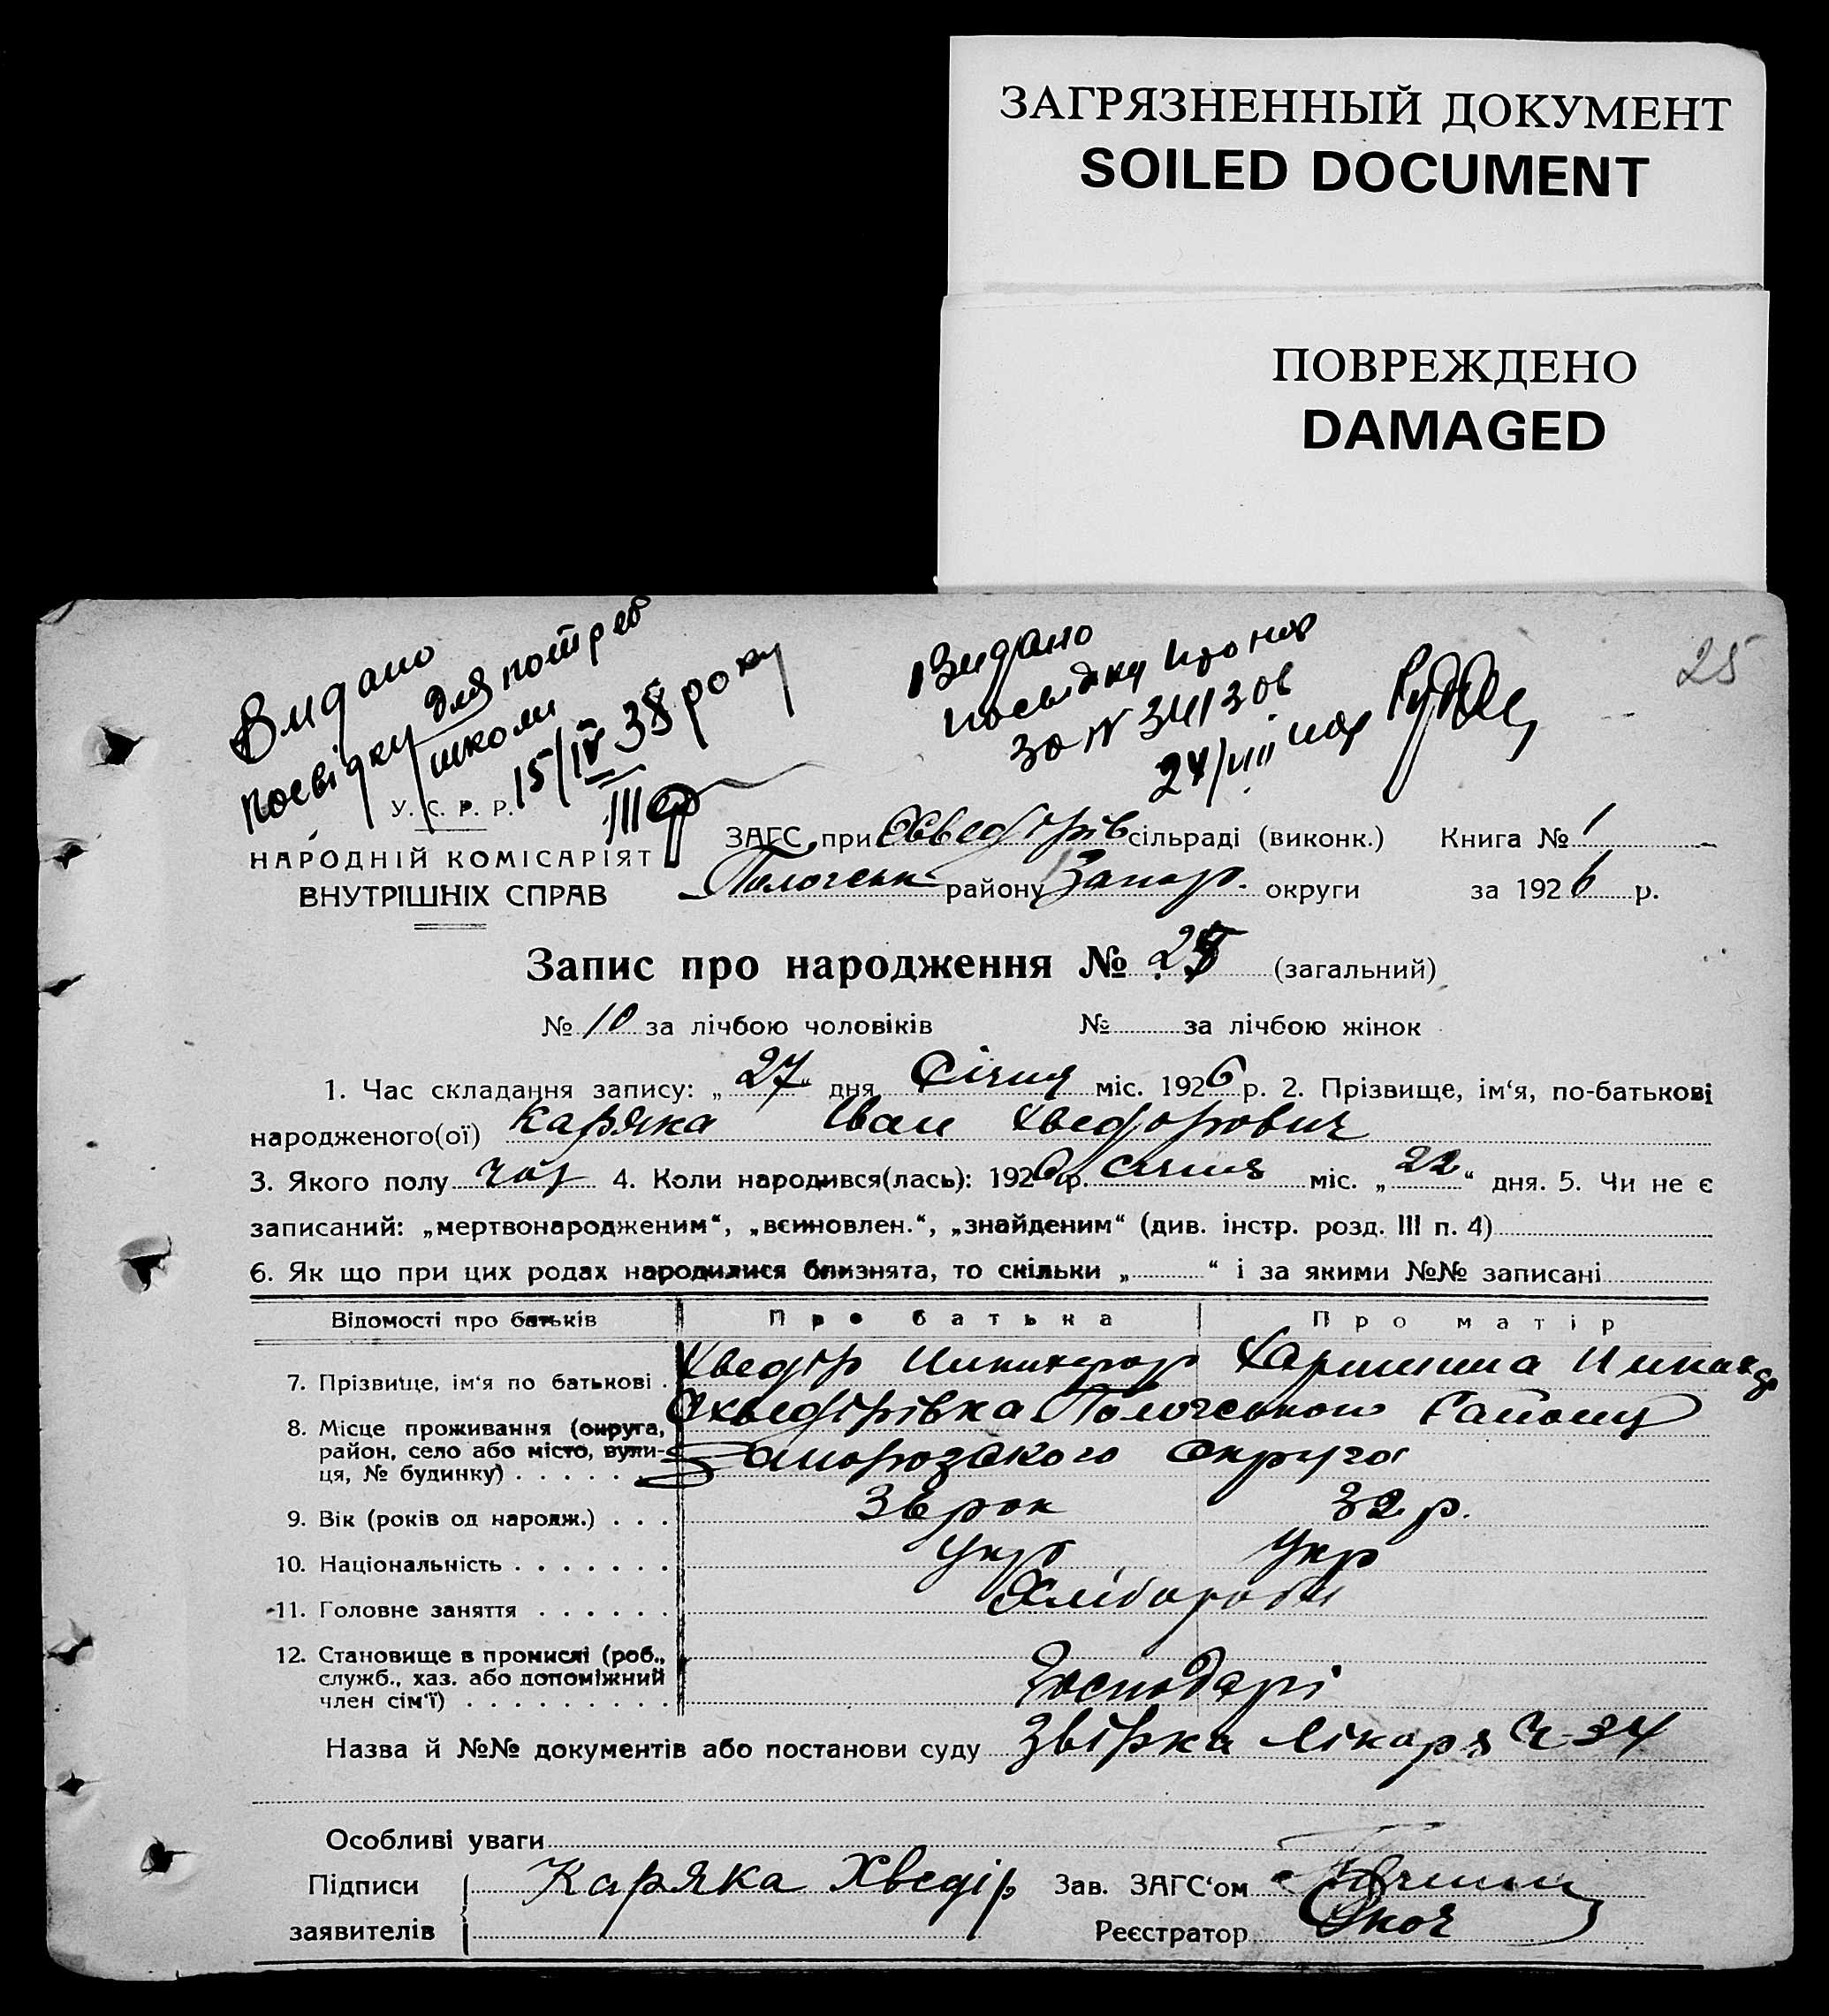 ЗАГРЯЗНЕННЫЙ ДОКУМЕНТ
SOILED DOCUMENT
ПОВРЕЖДЕНО
DAMAGED
25
Видано
посвідку для потреб
школи
15/IV 38 року
Видано
24/VIII
У. С. Р. Р.
НАРОДНІЙ КОМІСАРІЯТ
ВНУТРІШНІХ СПРАВ
ЗАГС при Охведорів сільраді (виконк.) Книга № 1
Пологськ району Запор. округи за 1926 р.
Запис про народження № 25 (загальний)
№ 10 за лічбою чоловіків № за лічбою жінок
1. Час складання запису: „27“ дня Січня міс. 1926 р. 2. Прізвище, ім‘я, по-батькові
народженого(ої) Каряка Іван Хведорович
3. Якого полу чол 4. Коли народився(лась): 1926 р. січня міс. „22“ дня. 5. Чи не є
записаний: „мертвонародженим“, „всиновлен.“, „знайденим“ (див. інстр. розд. III п. 4)
6. Як що при цих родах народилися близнята, то скільки „ “ і за якими №№ записані
Відомості про батьків Про батька Про матір
7. Прізвище, ім‘я по батькові . Хведір
8. Місце проживання (округа, Охведірівка Пологського Району
район, село або місто, вули-
ця, № будинку) . . . . . . Запорозького округа
9. Вік (років од народж.) . . . 36 рок 32 р.
10. Національність . . . . . . . Укр Укр
11. Головне заняття . . . . . . Хлібороби
12. Становище в промислі (роб.,
служб., хаз. або допоміжний
член сім‘ї) . . . . . . . . . Господарі
Назва й №№ документів або постанови суду Звірка лікаря Ч-34
Особливі уваги
Підписи Каряка Хведір Зав. ЗАГС‘ом
заявителів Реєстратор